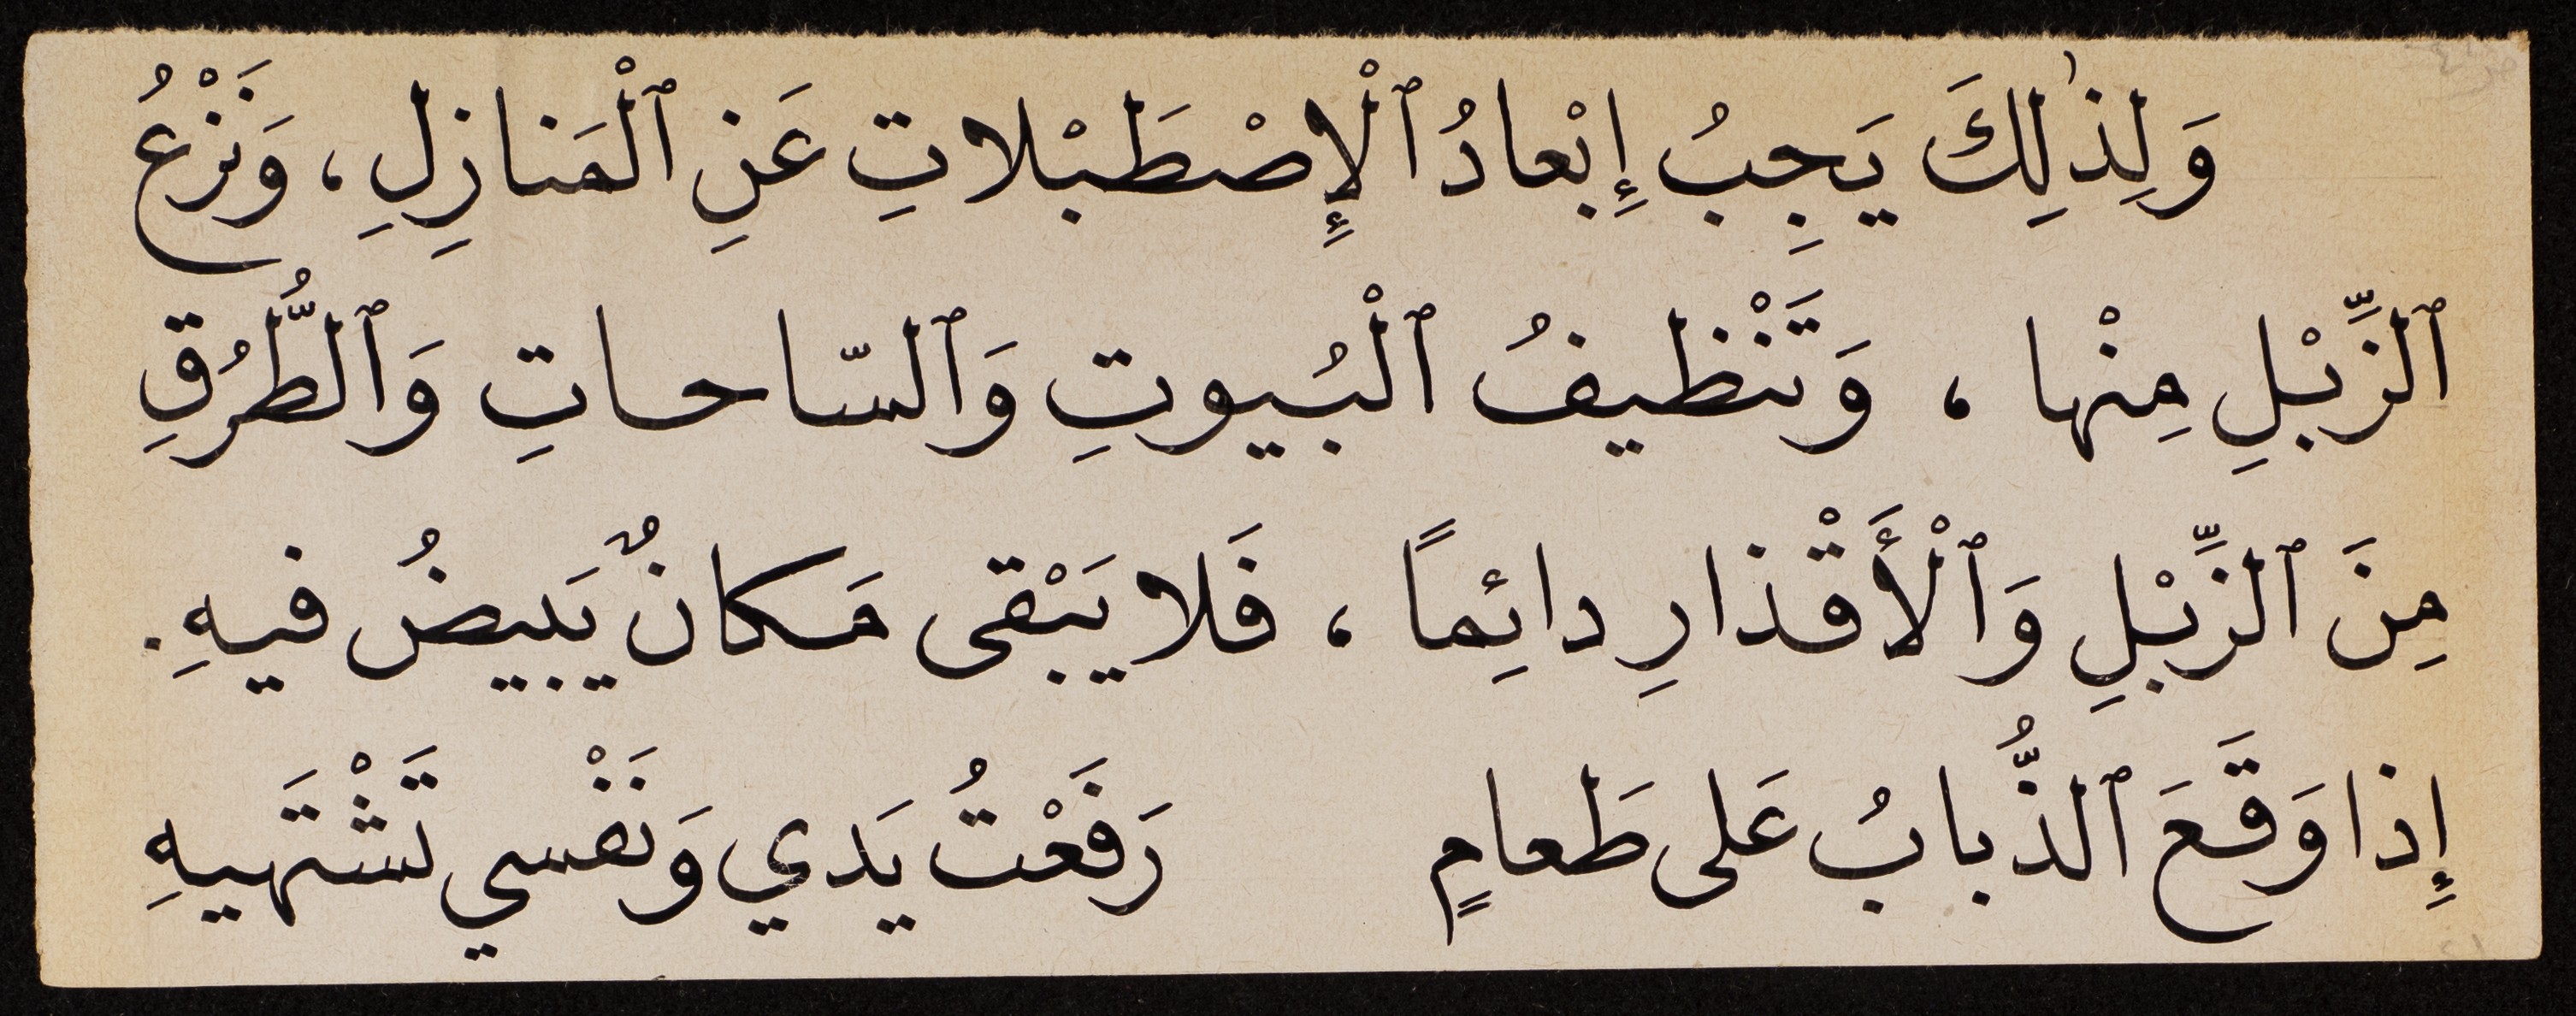 وَلِذٰلِكَ يَجِبُ إِبْعادُ ٱلْإِصْطَبْلاتِ عَنِ ٱلْمَنازِلِ ، وَنَزْعُ
ٱلزِّبْلِ مِنْها ، وَتَنْظيفُ ٱلْبُيوتِ وَٱلسّاحاتِ وَٱلطُّرُقِ
مِنَ ٱلزِّبْلِ وَٱلْأَقْذارِ دائِماً ، فَلا يَبْقى مَكانٌ يَبيضُ فيهِ .
إِذا وَقَعَ ٱلذُّبابُ عَلى طَعامٍ رَفَعْتُ يَدي وَنَفْسي تَشْتَهيهِ